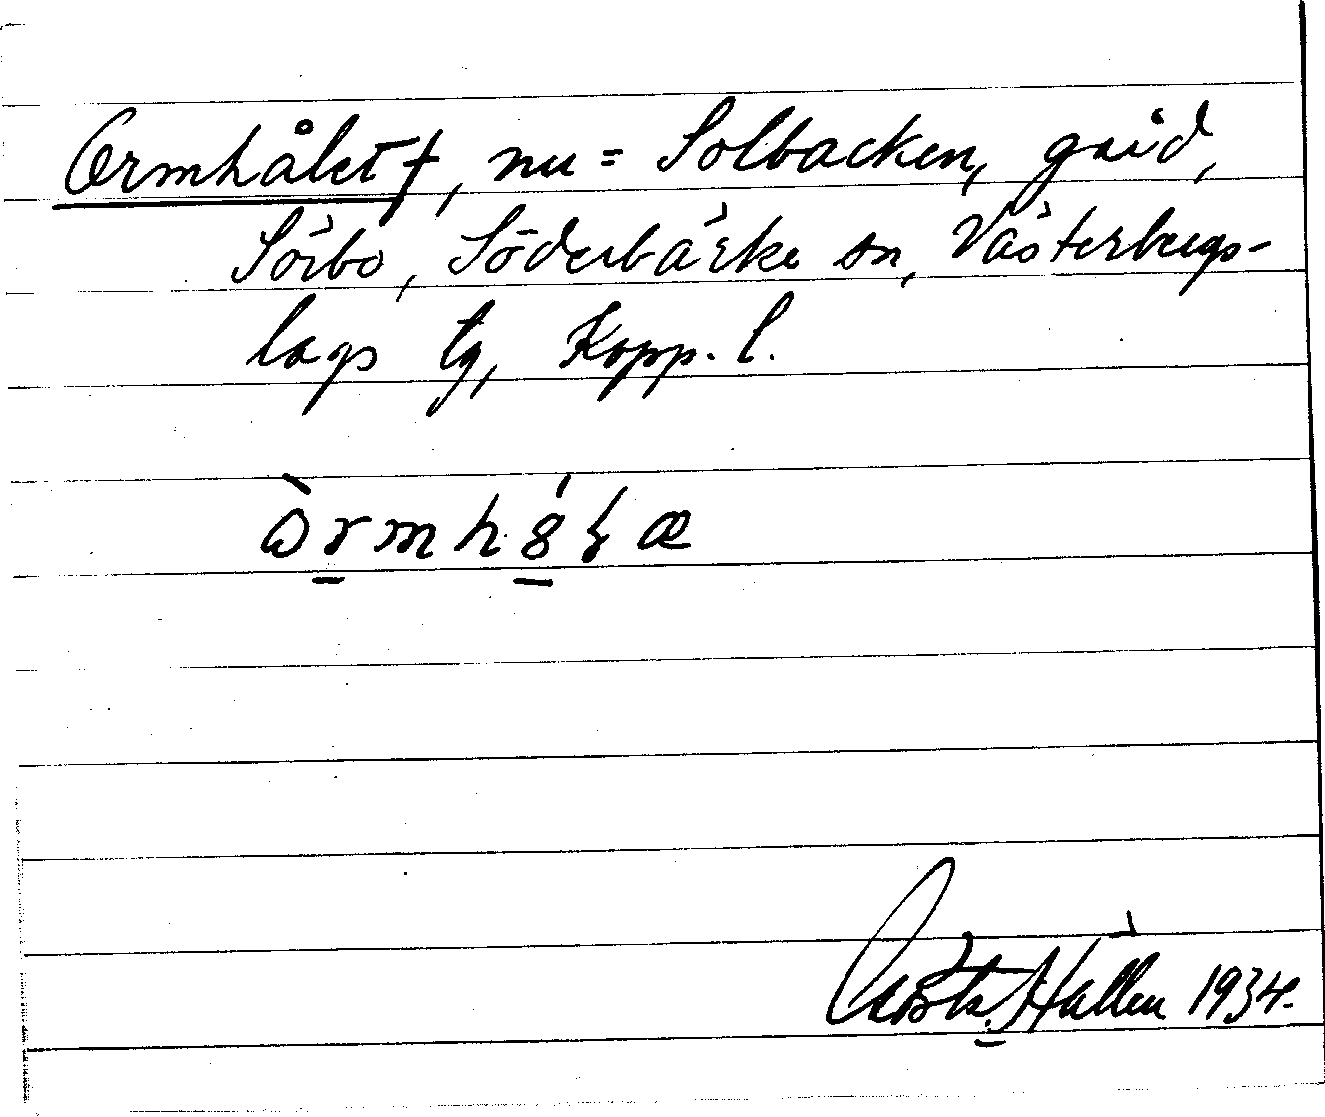 Ormhålet†, nu = Solbacken, gård,
Sörbo, Söderbärke sn, Västerbergs-
lags tg, Kopp. l.
Hällen 1934.